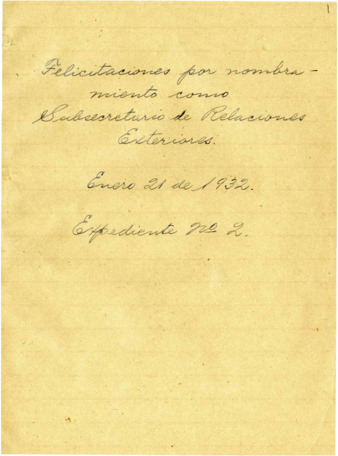 1
Felicitaciones por nombra-
miento como
Subsecretario de Relaciones
Exteriores.
Enero 21 de 1932.
Expediente Nº 2.